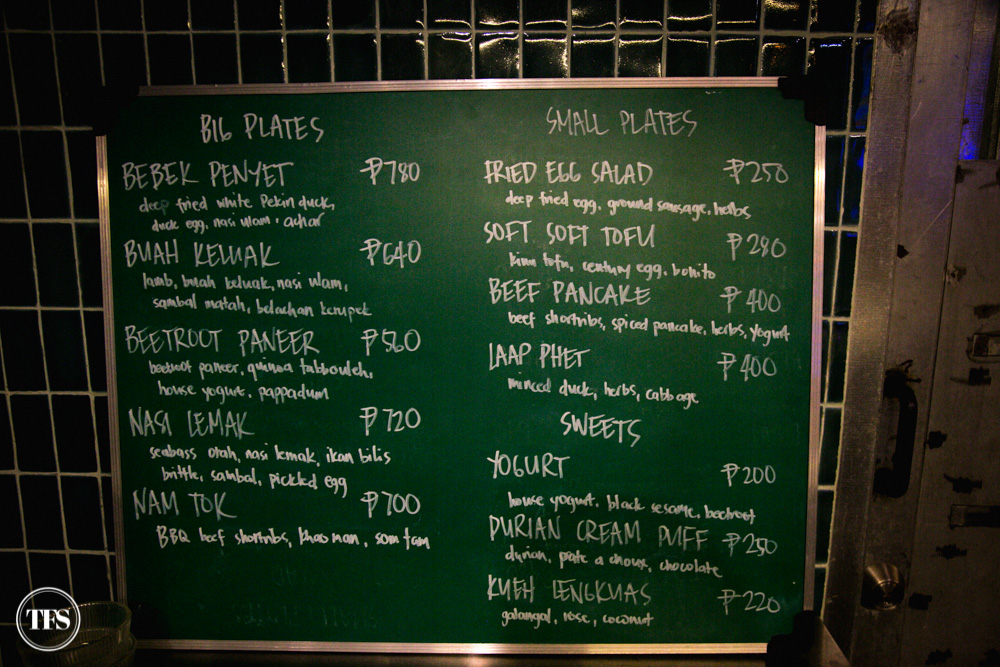 BIG PLATES
BEBEK PENYET ₱780
deep fried white Pekin duck,
duck egg, nasi ulam, achar
BUAH KELUAK ₱640
lamb, buah keluak, nasi ulam,
sambal matah, belachan kerupek
BEETROOT PANEER ₱560
beetroot paneer, quinoa tabbouleh,
house yogurt, pappadum
NASI LEMAK ₱720
seabass otah, nasi lemak, ikan bilis
brittle, sambal, pickled egg
NAM TOK ₱700
BBQ beef shortribs, khao man, som tam
SMALL PLATES
FRIED EGG SALAD ₱250
deep fried egg, ground sausage, herbs
SOFT SOFT TOFU ₱280
kinu tofu, century egg, bonito
BEEF PANCAKE ₱400
beef shortribs, spiced pancake, herbs, yogurt
LAAP PHET ₱400
minced duck, herbs, cabbage
SWEETS
YOGURT ₱200
house yogurt, black sesame, beetroot
DURIAN CREAM PUFF ₱250
durian, pate a choux, chocolate
KUEH LENGKUAS ₱220
galangal, rose, coconut
TFS